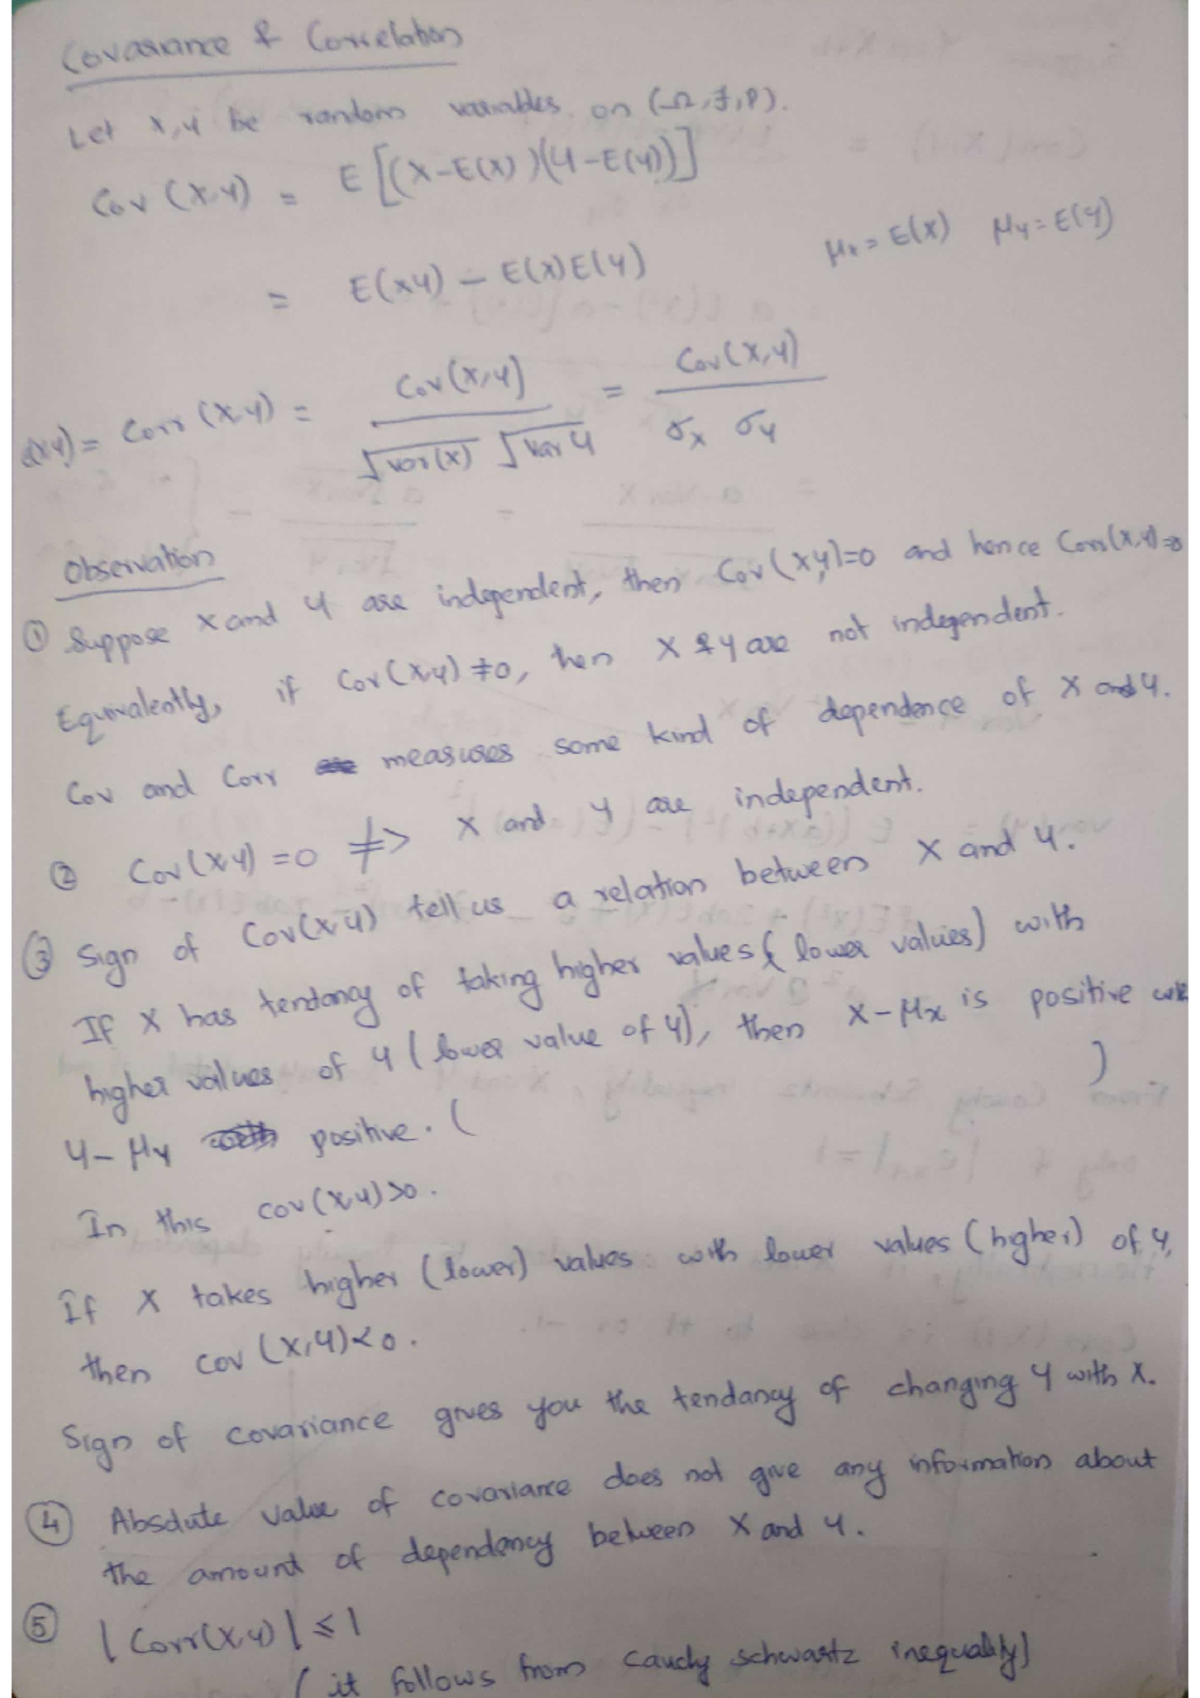 Covariance & Correlation
Let X, Y be random variables on (Ω, F, P).
Cov (X,Y) = E[(X-E(X))(Y-E(Y))]
= E(XY) - E(X)E(Y)    μx = E(X)  μY = E(Y)
(X,Y) = Corr (X,Y) = Cov(X,Y) / √var(X) √var Y = Cov(X,Y) / σx σY
Observation
① Suppose X and Y are independent, then Cov(X,Y)=0 and hence Corr(X,Y)=0
Equivalently, if Cov(X,Y) ≠0, then X & Y are not independent.
Cov and Corr measures some kind of dependence of X and Y.
② Cov(X,Y) =0 ≠> X and Y are independent.
③ Sign of Cov(X,Y) tell us a relation between X and Y.
If X has tendancy of taking higher values (lower values) with
higher values of Y (lower value of Y), then X-μx is positive
Y-μY positive. (    )
In this cov(X,Y)>0.
If X takes higher (lower) values with lower values (higher) of Y,
then cov (X,Y)<0.
Sign of covariance gives you the tendancy of changing Y with X.
④ Absolute value of covariance does not give any information about
the amount of dependency between X and Y.
⑤ |Corr(X,Y)| ≤ 1
( it follows from Cauchy schwartz inequality)